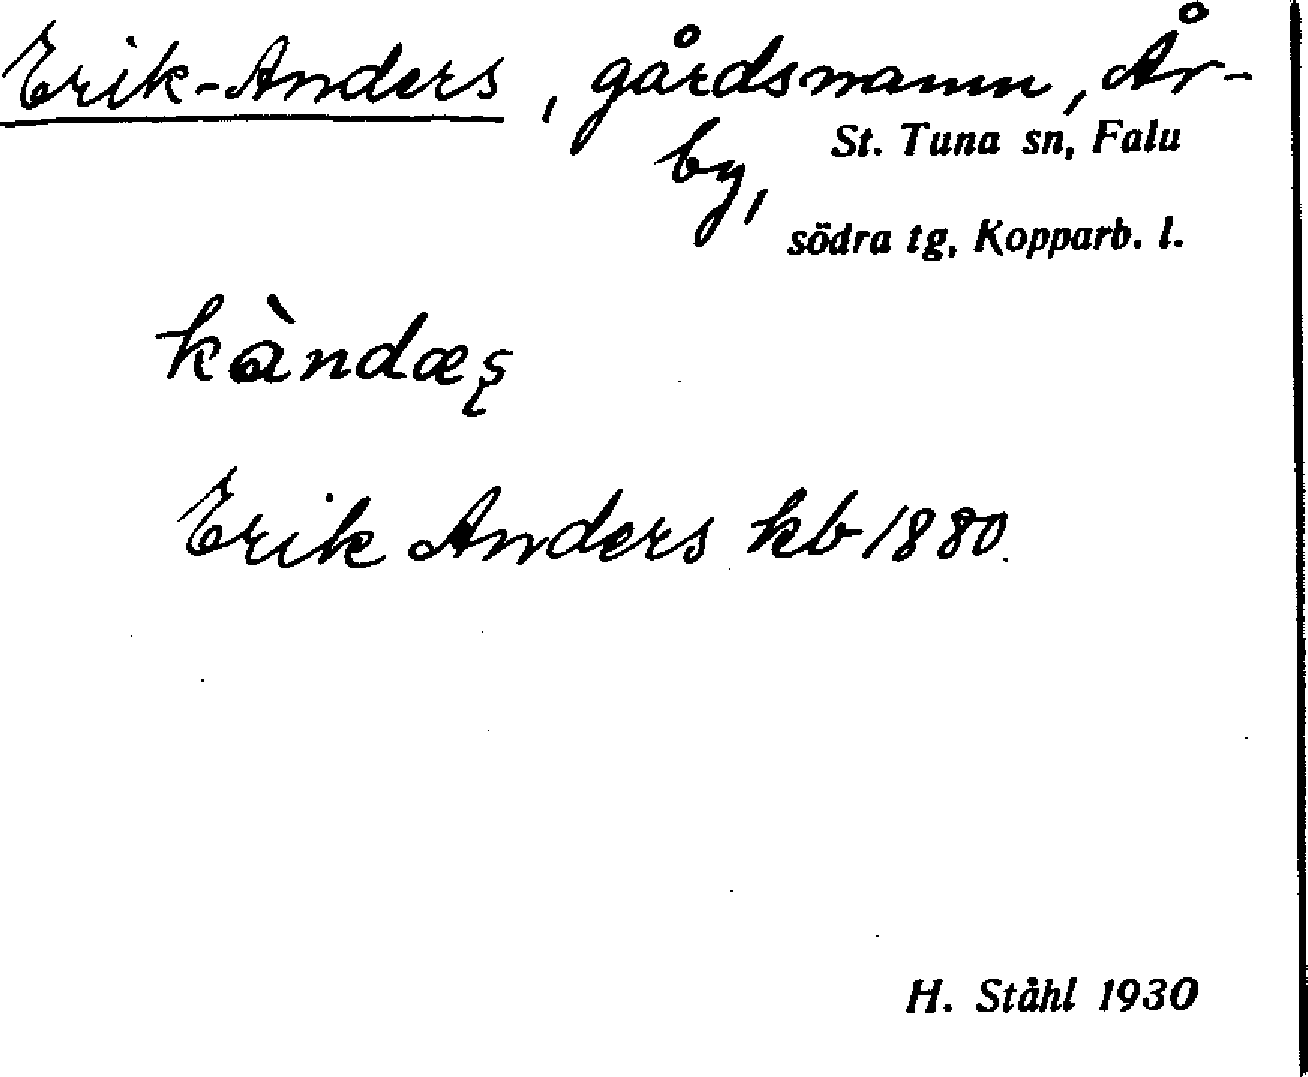 Erik-Anders, gårdsnamn, År-
by,
St. Tuna sn, Falu
södra tg, Kopparb. l.
kàndæʂ
Erik Anders kb 1880.
H. Ståhl 1930